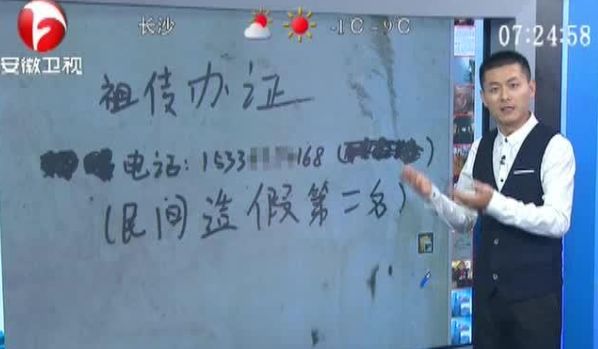 长沙 -1℃-9℃ 07:24:58
安徽卫视
祖传办证
电话:1533 168 ( )
(民间造假第二名)